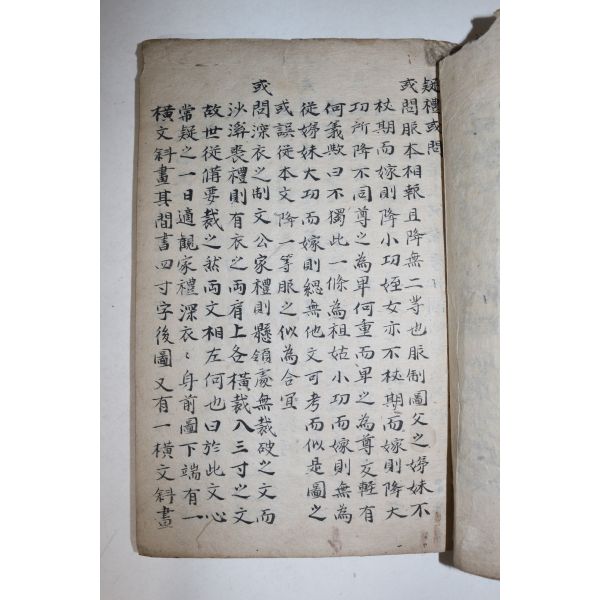 疑禮或問
或問服本相報且降無二等也服制圖父之姊妹不
杖期而嫁則降小功姪女亦不杖期而嫁則降大
功所降不同尊之為卑何重而卑之為尊反輕有
何義歟曰不獨此一條為祖姑小功而嫁則無為
從姊妹大功而嫁則緦無他文可考而似是圖之
或誤從本文降一等服之似為合宜
或問深衣之制文公家禮則懸領處無裁破之文而
沙溪喪禮則有衣之两肩上各橫裁入三寸之文
故世從備要裁之然両文相左何也曰於此文心
常疑之一日適觀家禮深衣〻身前圖下端有一
橫文斜畫其間書四寸字後圖又有一橫文斜畫